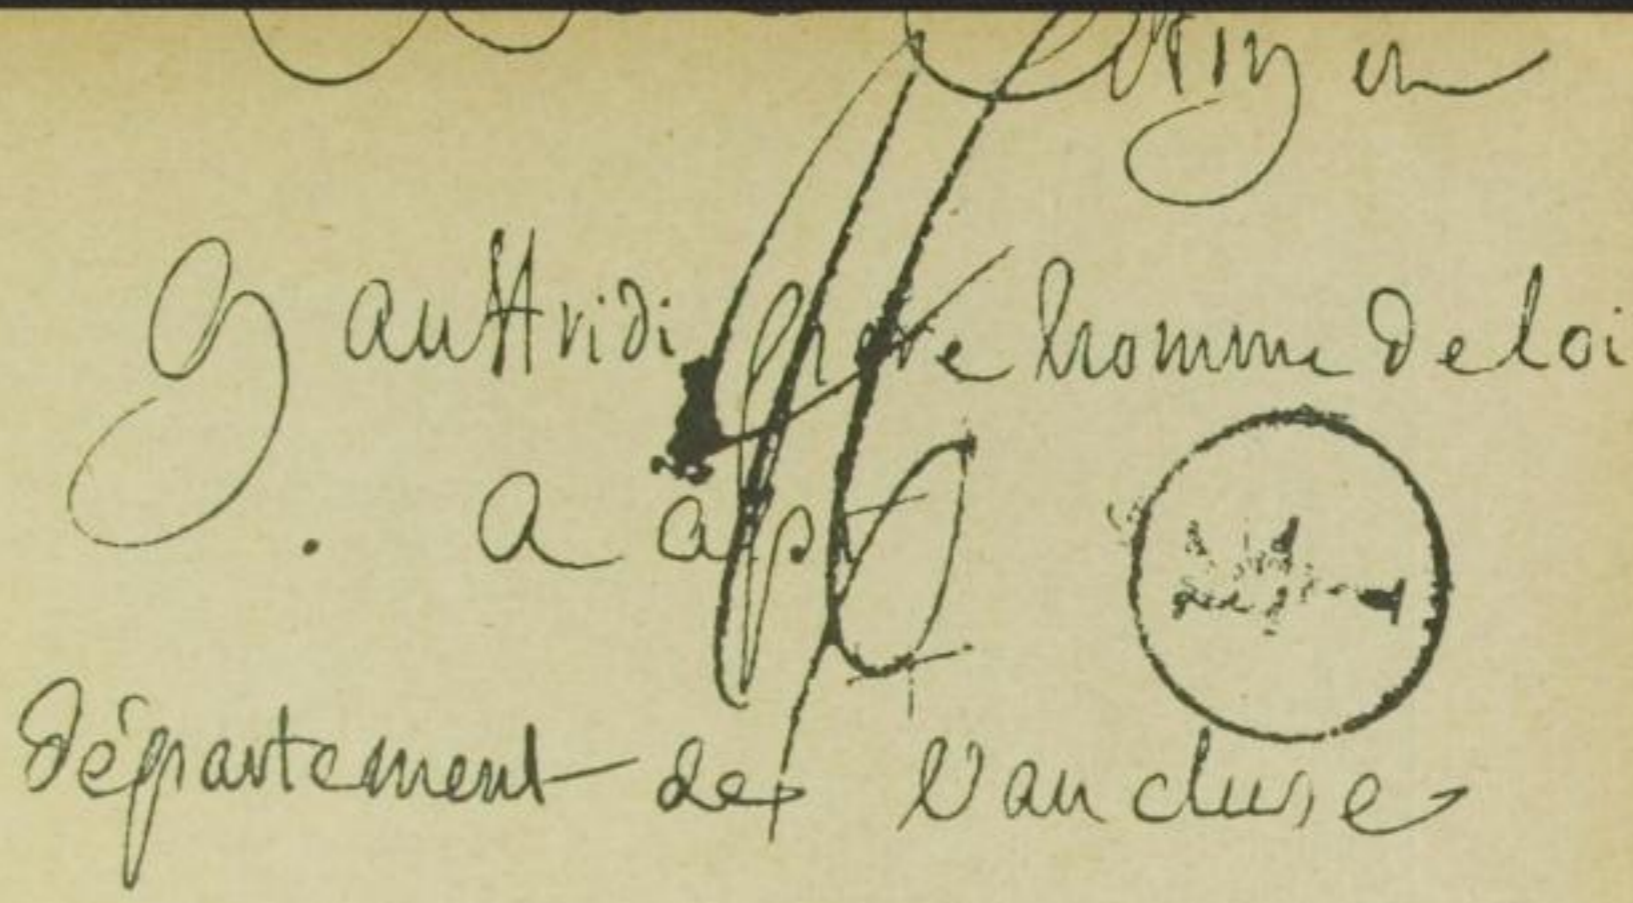 Citoyen
gauffridi père homme de loi
a apt
département de Vaucluse